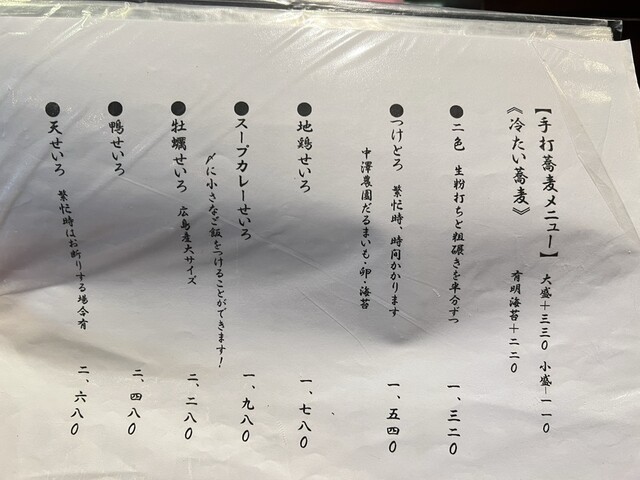 【手打蕎麦メニュー】 大盛+三三〇 小盛-一一〇
《冷たい蕎麦》 有明海苔+二二〇
●二色 生粉打ちと粗碾きを半分ずつ 一、三二〇
●つけとろ 繁忙時、時間かかります 一、五四〇
中澤農園だるまいも・卵・海苔
●地鶏せいろ 一、七八〇
●スープカレーせいろ 一、九八〇
〆に小さなご飯をつけることができます!
●牡蠣せいろ 広島産大サイズ 二、二八〇
●鴨せいろ 二、四八〇
●天せいろ 繁忙時はお断りする場合有 二、六八〇